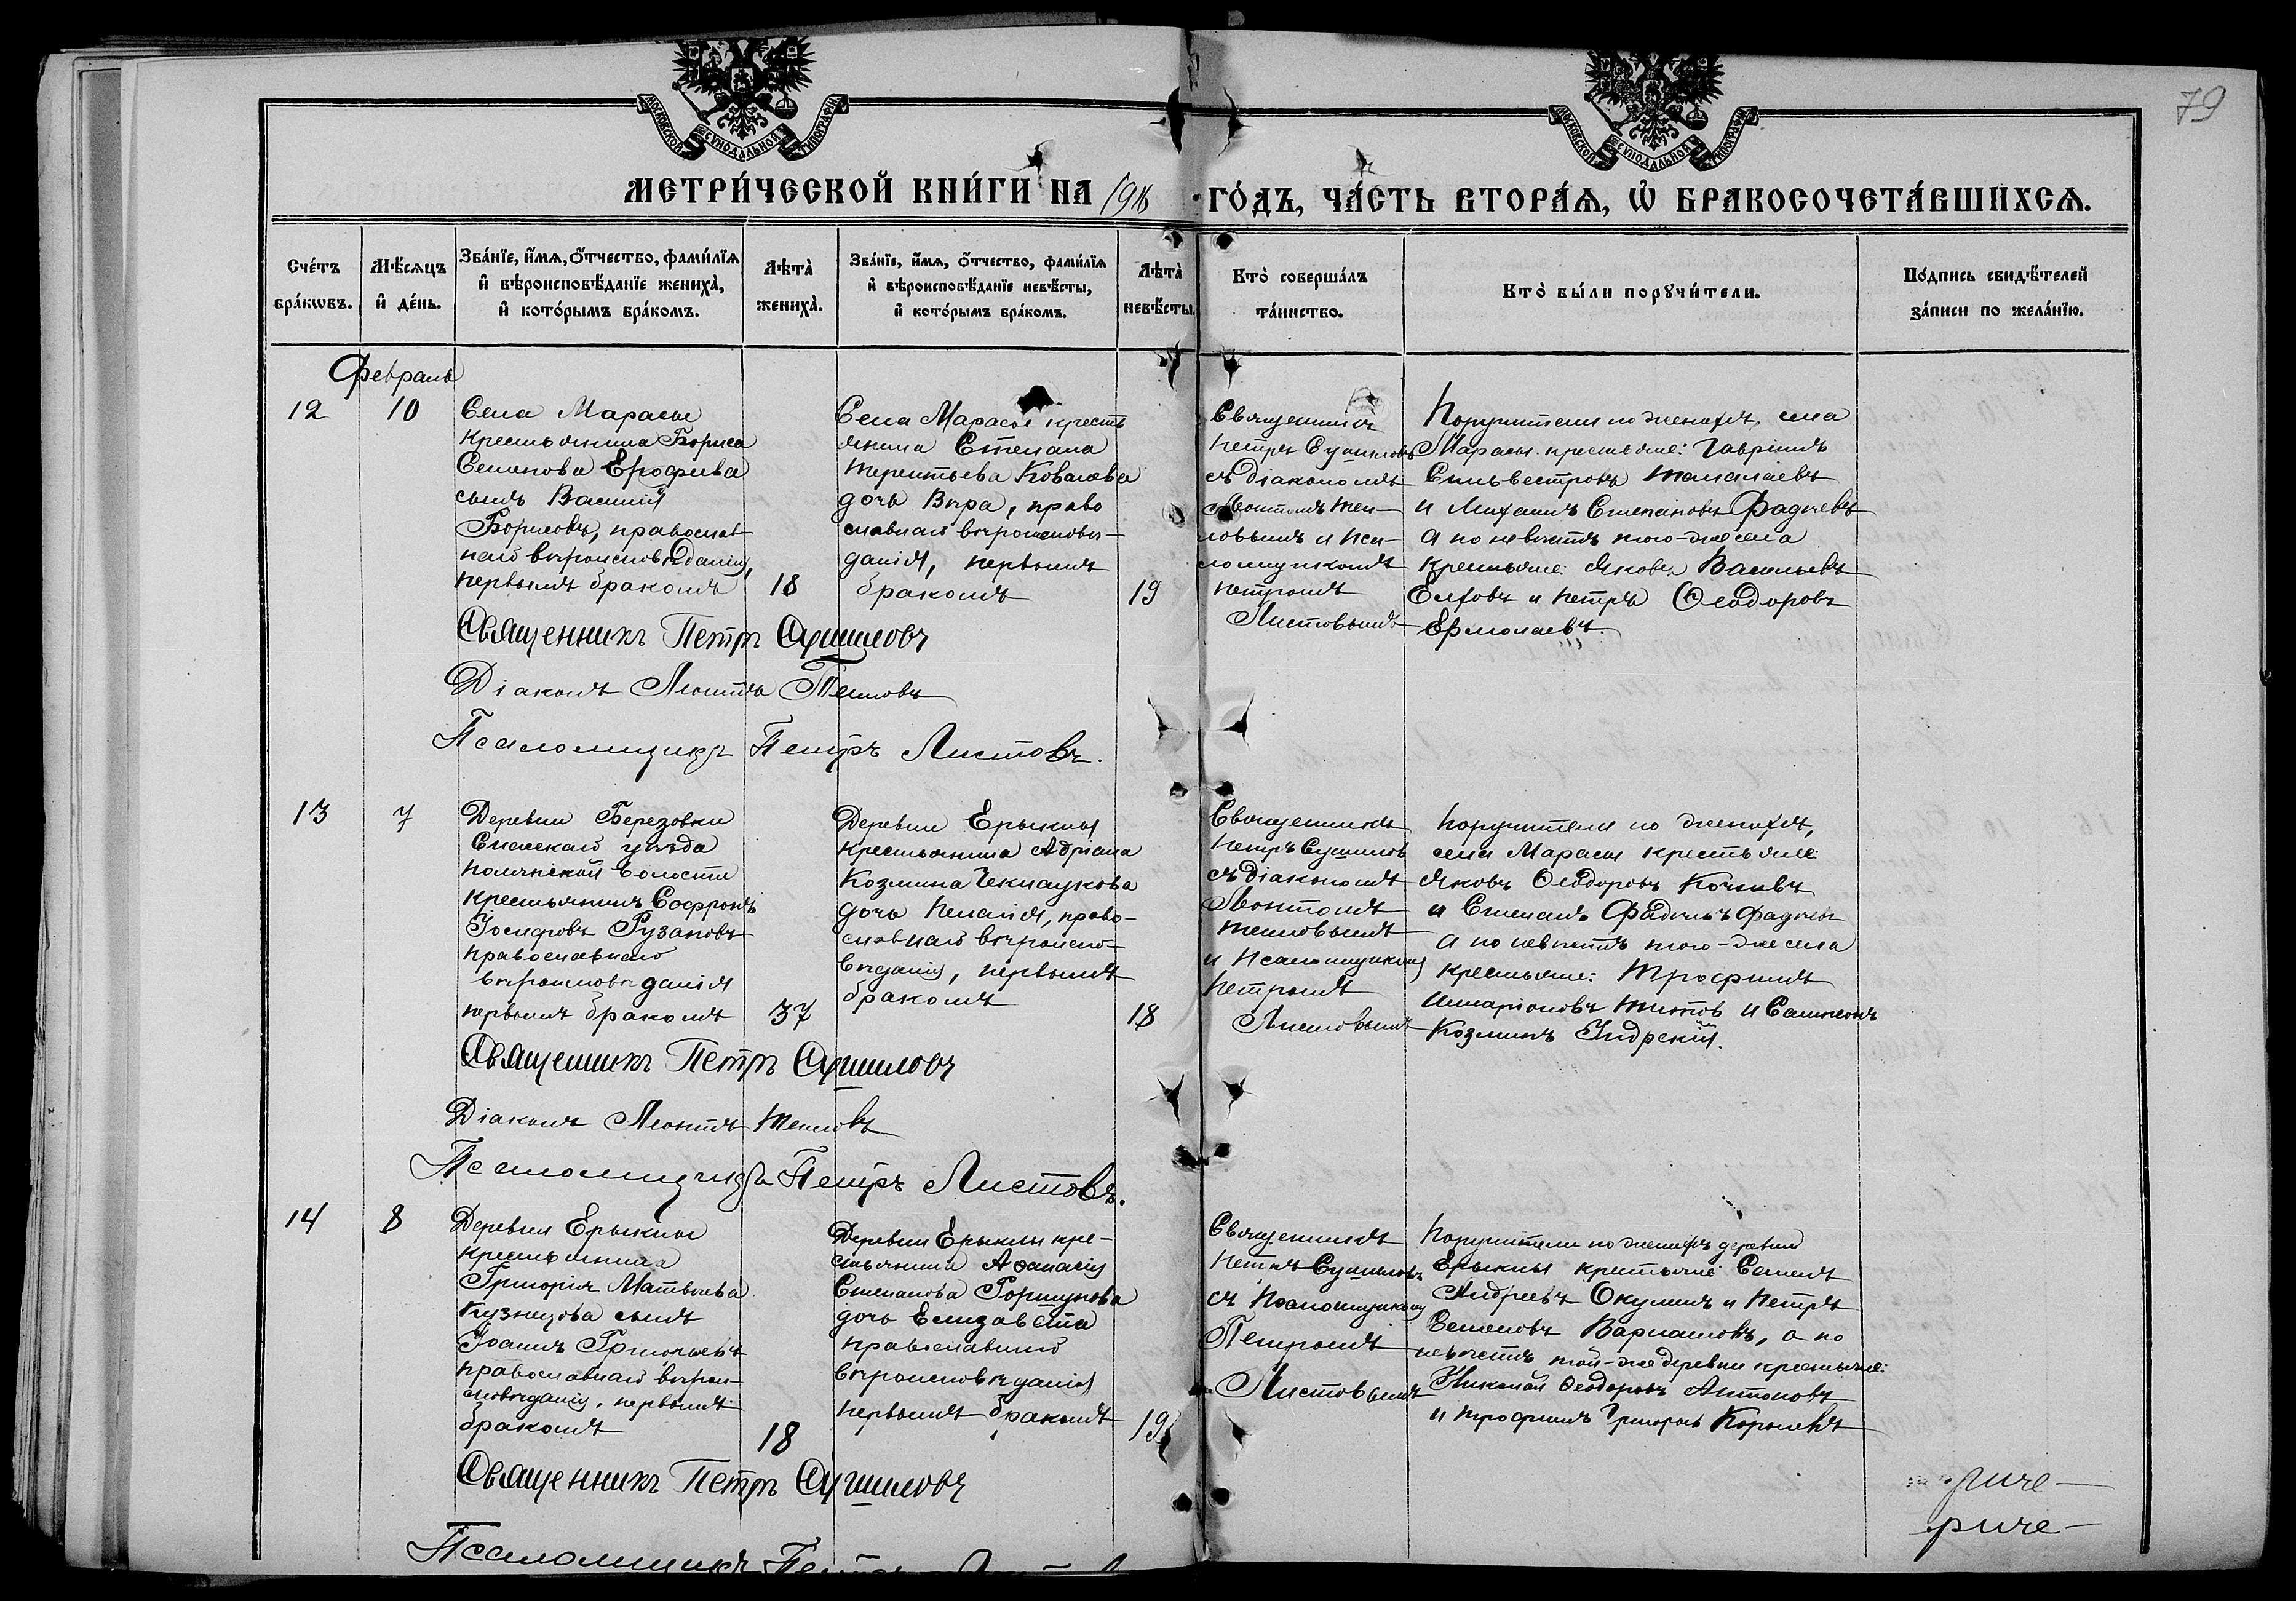 79
МОСКОВСКОЙ СѴНОДАЛЬНОЙ ТИПОГРАФІИ
МОСКОВСКОЙ СѴНОДАЛЬНОЙ ТИПОГРАФІИ
МЕТРИ́ЧЕСКОЙ КНИ́ГИ НА 1916 ГО́ДЪ, ЧА́СТЬ ВТОРА́Ѧ, Ѽ БРАКОСОЧЕТА́ВШИХСѦ.
Сче́тъ
бра́кѡвъ.
Мѣ́сѧцъ
и҆ де́нь.
Зва́нїе, и҆́мѧ, ѻ҆́тчество, фами́лїѧ
и҆ вѣроисповѣ́данїе жениха̀,
и҆ кото́рымъ бра́комъ.
Лѣта̀
жениха̀.
Зва́нїе, и҆́мѧ, ѻ҆́тчество, фами́лїѧ
и҆ вѣроисповѣ́данїе невѣ́сты,
и҆ кото́рымъ бра́комъ.
Лѣта̀
невѣ́сты.
Кто̀ соверша́лъ
та́инство.
Кто̀ бы́ли порꙋчи́тели.
По́дпись свидѣ́телей
за́писи по жела́нїю.
Февраль
12
10
Села Марасы
крестьянина Бориса
Семенова Ерофѣева
сынъ Василій
Борисовъ, православ
наго вѣроисповѣданія,
первымъ бракомъ
18
Села Марасы кресть
янина Степана
Терентьева Ковалева
дочь Вѣра, право
славнаго вѣроисповѣ-
данія, первымъ
бракомъ
19
Священникъ
Петръ Сушиловъ
съ діакономъ
Леонтомъ Теп-
ловымъ и пса-
ломщикомъ
Петромъ
Листовымъ
Поручители по женихѣ, села
Марасы крестьяне: Гавріилъ
Сильвестровъ Талалаевъ
и Михаилъ Степановъ Фадѣевъ
а по невѣстѣ того-же села
крестьяне: Яковъ Васильевъ
Елховъ и Петръ Ѳеодоровъ
Ермолаевъ.
Священникъ Петръ Сушиловъ
Діаконъ Леонтъ Тепловъ
Псаломщикъ Петръ Листовъ.
13
7
Деревни Березовки
Спасскаго уѣзда
Полянской волости
крестьянинъ Софронъ
Іосифовъ Рузановъ
православнаго
вѣроисповѣданія
первымъ бракомъ
37
Деревни Ерыклы
крестьянина Адріана
Козмина Чекнаукова
дочь Пелагія, право-
славнаго вѣроиспо-
вѣданія, первымъ
бракомъ
18
Священникъ
Петръ Сушиловъ
съ діакономъ
Леонтомъ
Тепловымъ
и Псаломщикомъ
Петромъ
Листовымъ
Поручители по женихѣ,
села Марасы крестьяне:
Яковъ Ѳеодоровъ
и Степанъ Фадѣевъ Фадѣевъ
а по невѣстѣ того-же села
крестьяне: Трофимъ
Иларіоновъ Титовъ и Сампсонъ
Козминъ
Священникъ Петръ Сушиловъ
Діаконъ Леонтъ Тепловъ
Псаломщикъ Петръ Листовъ.
14
8
Деревни Ерыклы
крестьянина
Григорія Матвѣева
Кузнецова сынъ
Іоаннъ Григорьевъ
православнаго вѣрои-
сповѣданія, первымъ
бракомъ
18
Деревни Ерыклы кре-
стьянина Аѳанасія
Степанова Горшунова
дочь Елизавета
православнаго
вѣроисповѣданія
первымъ бракомъ
19
Священникъ
Петръ Сушиловъ
съ Псаломщикомъ
Петромъ
Листовымъ
Поручители по женихѣ деревни
Ерыклы крестьяне: Семенъ
Андреевъ Окулинъ и Петръ
Семеновъ Варламовъ, а по
невѣстѣ той-же деревни крестьяне:
Николай Ѳеодоровъ Антоновъ
и Трофимъ Григорьевъ Королевъ
Священникъ Петръ Сушиловъ
Псаломщикъ Петръ